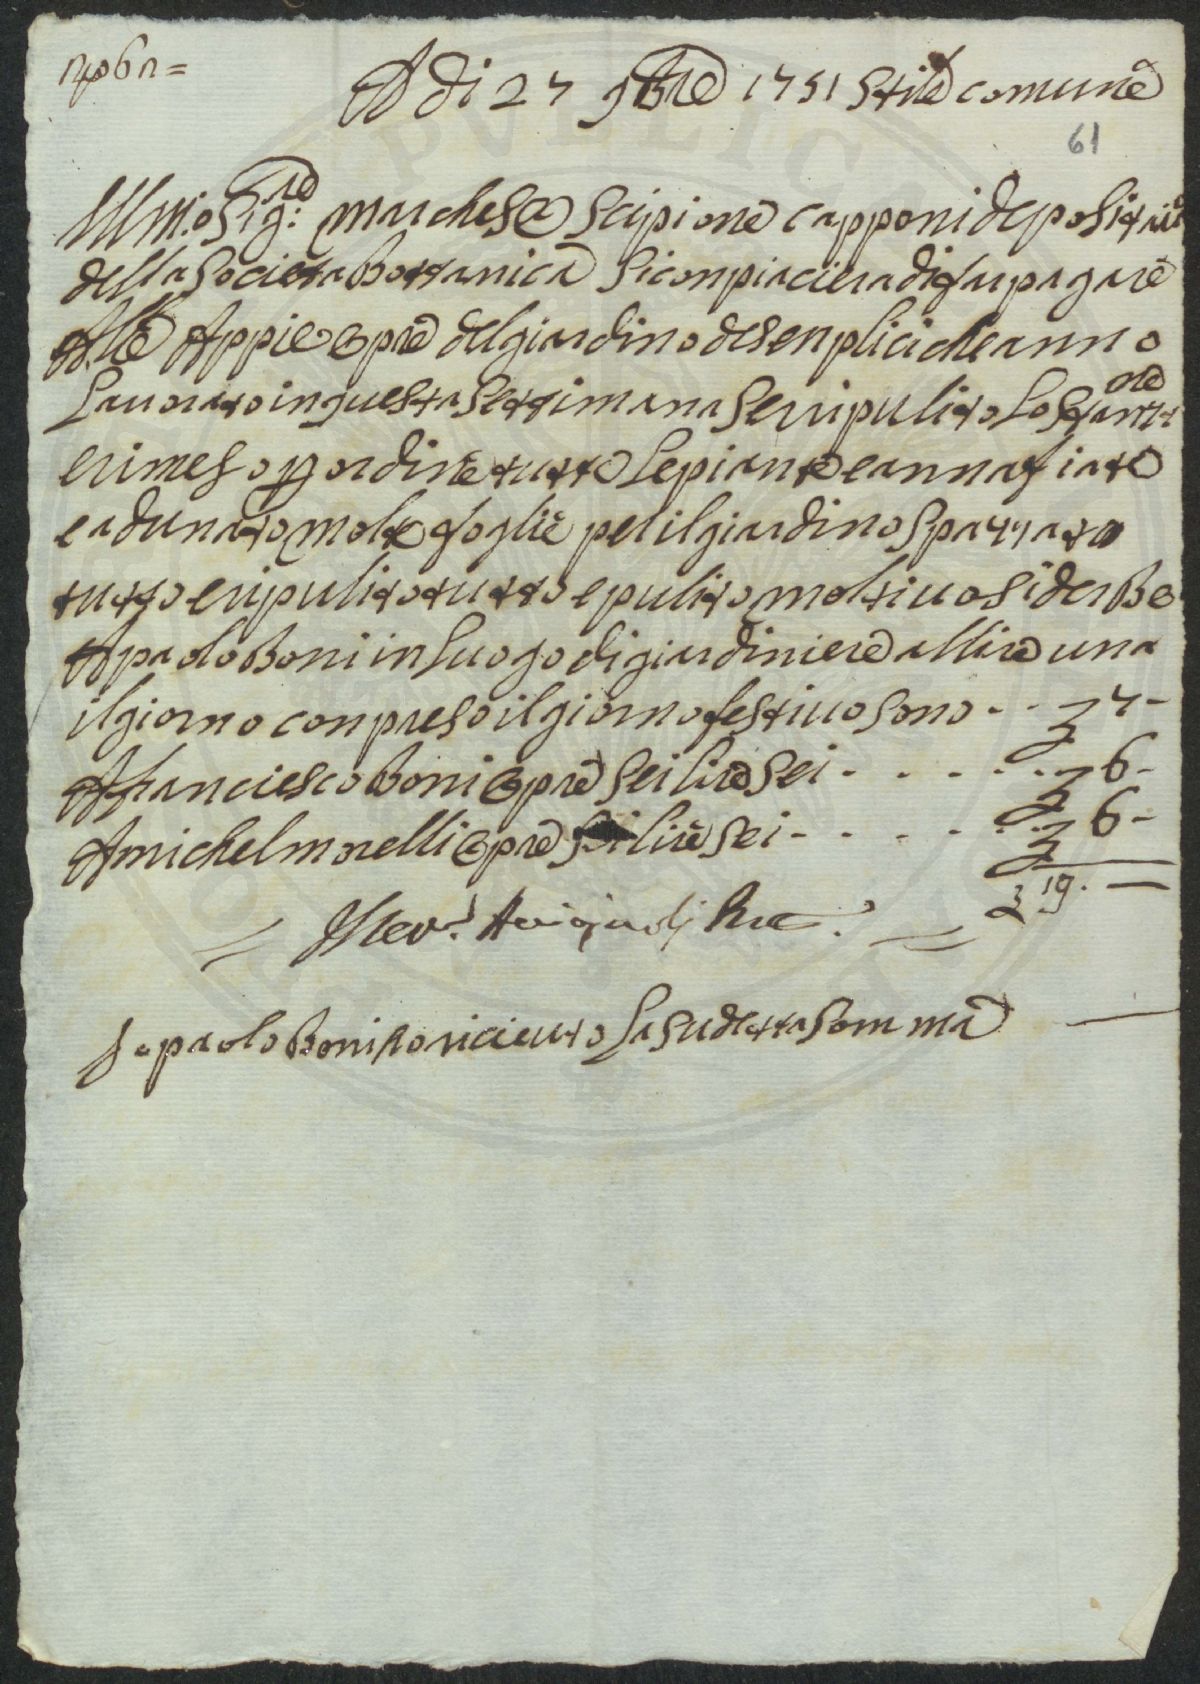 n° 61 =
A di 27 9bre 1751 stile comune
61
Ill.mo Sig.re marchese Scipione capponi depositaio
della Societa Bottanica Si conpiaciera di far pagare
Alle Appie opre del giardino de senplici che anno
Lauorato in questa Settimana Se ripulito Lo Stanzone
e rimeso p ordine tutte Le piante e annafiate
e adunato molte foglie pel il giardino Spazzato
tutto e ripulito tutto e pulito molti uasi derbe
A paolo Boni in Luogo di giardiniere a llire una
il giorno conpreso il giorno festiuo Sono - - £ 7 -
A franciesco Boni opre Sei lire Sei - - - - - £ 6 -
A michel morelli opre Sei lire Sei - - - - - £ 6 -
£ 19. -
= =
Io paolo Boni o riceuto La Sudetta Somma